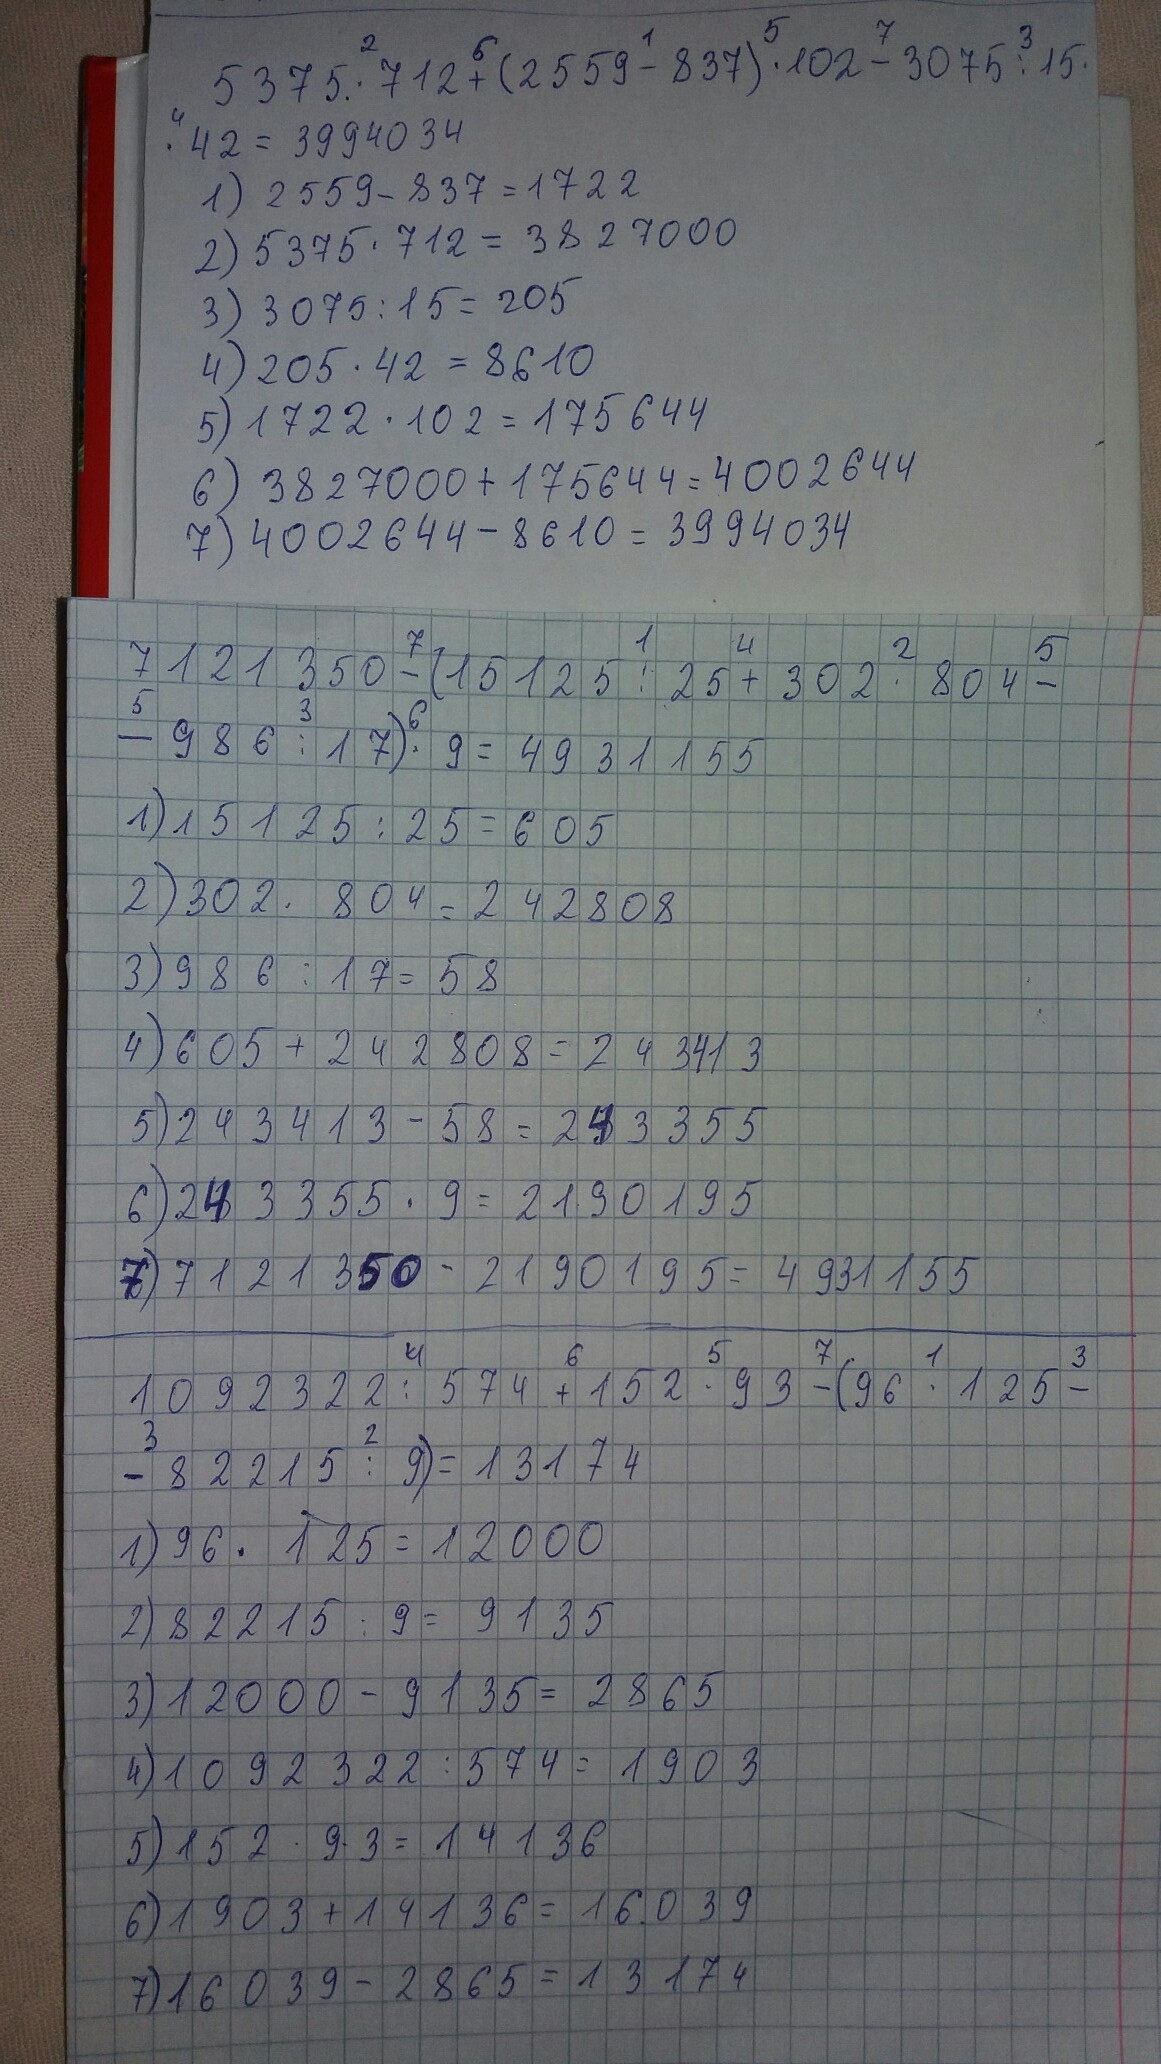 5375 · 712 + (2559 - 837) · 102 - 3075 : 15 ·
· 42 = 3994034
1) 2559 - 837 = 1722
2) 5375 · 712 = 3827000
3) 3075 : 15 = 205
4) 205 · 42 = 8610
5) 1722 · 102 = 175644
6) 3827000 + 175644 = 4002644
7) 4002644 - 8610 = 3994034
7121350 - (15125 : 25 + 302 · 804 -
- 986 : 17) · 9 = 4931155
1) 15125 : 25 = 605
2) 302 · 804 = 242808
3) 986 : 17 = 58
4) 605 + 242808 = 243413
5) 243413 - 58 = 243355
6) 243355 · 9 = 2190195
7) 7121350 - 2190195 = 4931155
1092322 : 574 + 152 · 93 - (96 · 125 -
- 82215 : 9) = 13174
1) 96 · 125 = 12000
2) 82215 : 9 = 9135
3) 12000 - 9135 = 2865
4) 1092322 : 574 = 1903
5) 152 · 93 = 14136
6) 1903 + 14136 = 16039
7) 16039 - 2865 = 13174